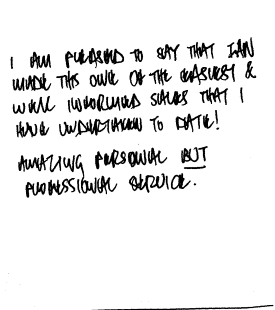 I AM PLEASED TO SAY THAT IAN
MADE THIS ONE OF THE EASIEST &
WELL INFORMED SALES THAT I
HAVE UNDERTAKEN TO DATE!
AMAZING PERSONAL BUT
PROFESSIONAL SERVICE.